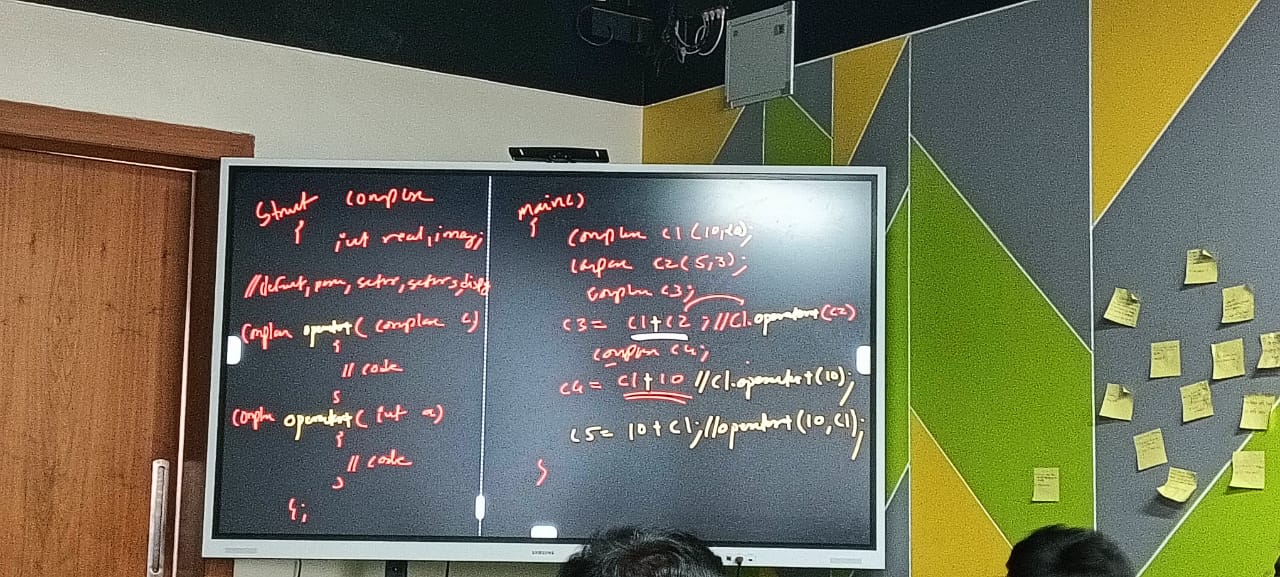 struct complex
{
int real, imag;
//default, para, setter, setters, disp
Complex operator+( complex c)
{
// code
}
Complex operator+( int a)
{
// code
}
};
main()
{
Complex c1 (10,20);
Complex c2(5,3);
Complex c3;
c3 = c1+c2 ; //c1.operator+(c2)
complex c4;
c4 = c1+10 //c1.operator+(10);
c5 = 10+c1;//operator+(10,c1);
}
SAMSUNG